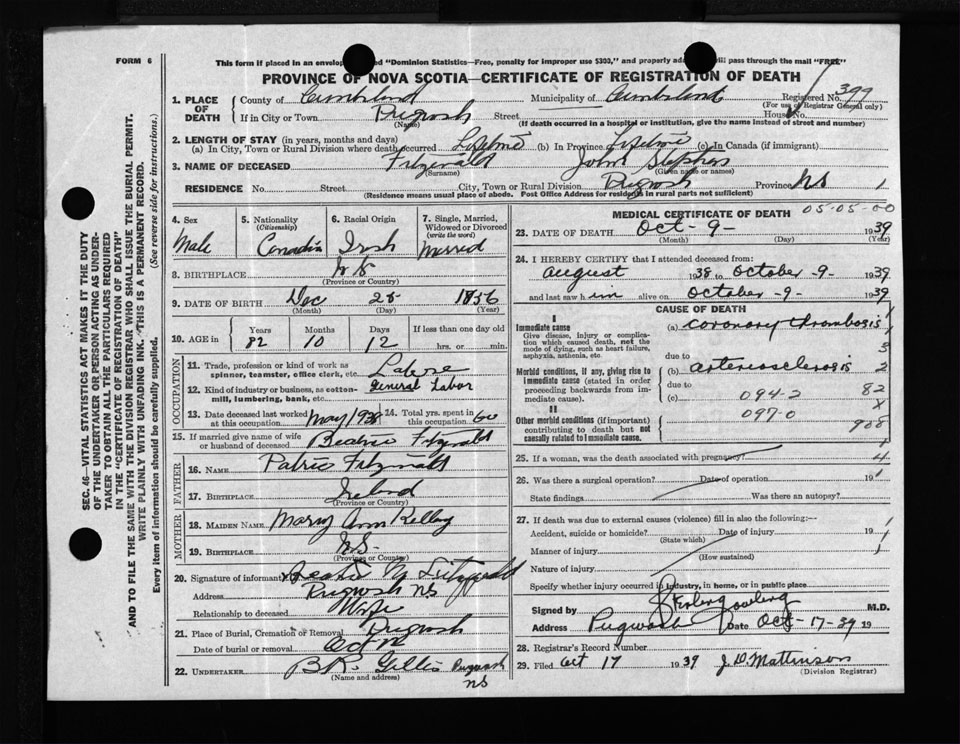 FORM 6
This form if placed in an envelop ed "Dominion Statistics—Free, penalty for improper use $300," and properly ad will pass through the mail "FREE"
PROVINCE OF NOVA SCOTIA—CERTIFICATE OF REGISTRATION OF DEATH
SEC. 46—VITAL STATISTICS ACT MAKES IT THE DUTY
OF THE UNDERTAKER OR PERSON ACTING AS UNDER-
TAKER TO OBTAIN ALL THE PARTICULARS REQUIRED
IN THE "CERTIFICATE OF REGISTRATION OF DEATH"
AND TO FILE THE SAME WITH THE DIVISION REGISTRAR WHO SHALL ISSUE THE BURIAL PERMIT.
WRITE PLAINLY WITH UNFADING INK. THIS IS A PERMANENT RECORD.
Every item of information should be carefully supplied. (See reverse side for instructions.)
1. PLACE OF DEATH County of Cumberland Municipality of Cumberland Registered No. 399
(For use of Registrar General only)
If in City or Town Pugwash Street House No.
(Name) (If death occurred in a hospital or institution, give the name instead of street and number)
2. LENGTH OF STAY (in years, months and days)
(a) In City, Town or Rural Division where death occurred Lifetime (b) In Province Lifetime (c) In Canada (if immigrant)
3. NAME OF DECEASED Fitzgerald John Stephen
(Surname) (Given name or names)
RESIDENCE No. Street City, Town or Rural Division Pugwash Province NS 1
(Residence means usual place of abode. Post Office Address for residents in rural parts not sufficient)
4. Sex 5. Nationality (Citizenship) 6. Racial Origin 7. Single, Married, Widowed or Divorced (Write the word)
Male Canadian Irish Married
8. BIRTHPLACE N S
(Province or Country)
9. DATE OF BIRTH Dec 25 1856
(Month) (Day) (Year)
10. AGE in Years Months Days If less than one day old
82 10 12 hrs. or min.
OCCUPATION
11. Trade, profession or kind of work as spinner, teamster, office clerk, etc. Laborer
12. Kind of industry or business, as cotton-mill, lumbering, bank, etc. General Labor
13. Date deceased last worked at this occupation May 1938 14. Total yrs. spent in this occupation 60
15. If married give name of wife or husband of deceased Beatrice Fitzgerald
FATHER
16. NAME Patric Fitzgerald
17. BIRTHPLACE Ireland
(Province or Country)
MOTHER
18. MAIDEN NAME Mary Ann Kelley
19. BIRTHPLACE N.S.
(Province or Country)
20. Signature of informant Beatrice M Fitzgerald
Address Pugwash NS
Relationship to deceased Wife
21. Place of Burial, Cremation or Removal Pugwash
Date of burial or removal Oct 12
22. UNDERTAKER B.R. Gillis Pugwash NS
(Name and address)
MEDICAL CERTIFICATE OF DEATH 05-05-00
23. DATE OF DEATH Oct - 9 - 1939
(Month) (Day) (Year)
24. I HEREBY CERTIFY that I attended deceased from:
August 1938 to October -9- 1939
and last saw him alive on October -9- 1939
CAUSE OF DEATH
I
Immediate cause (a) coronary thrombosis
Give disease, injury or complication which caused death, not the mode of dying, such as heart failure, asphyxia, asthenia, etc.
due to 3
Morbid conditions, if any, giving rise to immediate cause (stated in order proceeding backwards from immediate cause). (b) arteriosclerosis 2
due to
(c) 094-2 82
II 097-0 X
Other morbid conditions (if important) contributing to death but not causally related to immediate cause. 908
25. If a woman, was the death associated with pregnancy? 4
26. Was there a surgical operation? Date of operation 19
State findings Was there an autopsy?
27. If death was due to external causes (violence) fill in also the following:—
Accident, suicide or homicide? Date of injury 19
(State which)
Manner of injury
(How sustained)
Nature of injury
Specify whether injury occurred in industry, in home, or in public place
Signed by M.D.
Address Pugwash Date Oct-17-39 19
28. Registrar's Record Number
29. Filed Oct 17 1939 J. D. Mattinson
(Division Registrar)